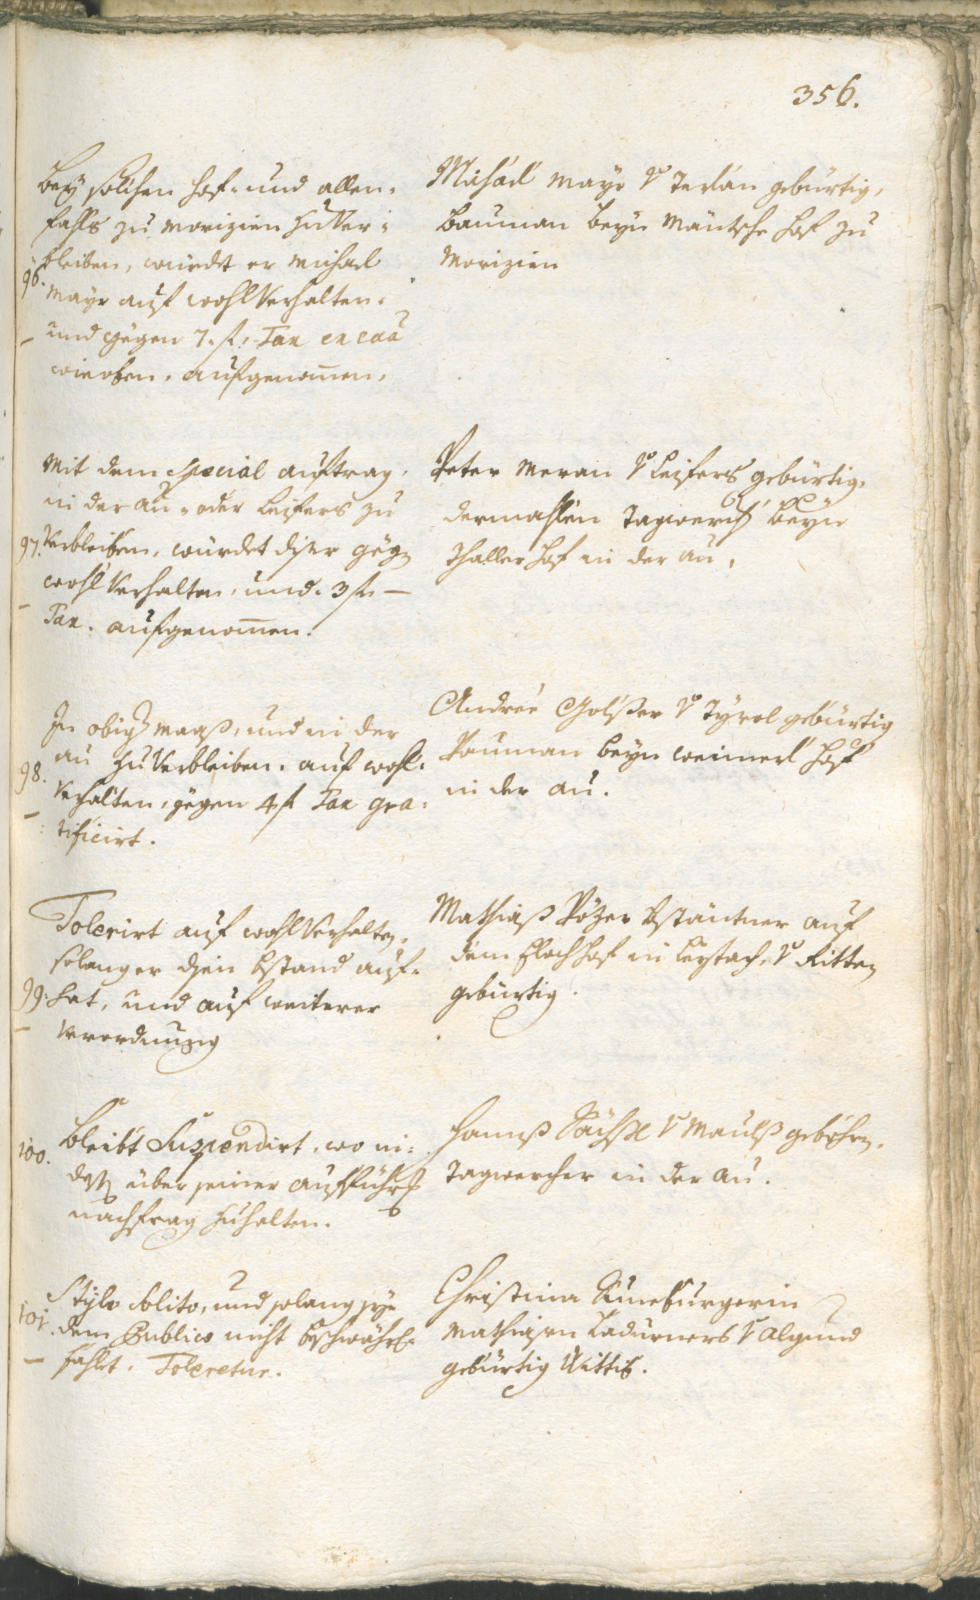 356.
Bey solchen Hof- und allen-
fahls zu Morizien zuver-
bleiben, wurdet er Michael
96.
Mayr auf wohl Verhalten.
und gegen 7. f. Tax en caa
wie oben. aufgenomen.
Michael Mayr v Terlan gebürtig,
Bauman beyn Mäntsche Hof zu
Morizien
Mit dem Special auftrag.
in der au - oder Leifers zu
97. Verbleiben, würdet diser gegen
wohl Verhalten, und 3 f. —
Tax. aufgenomen.
Peter Meran v Leifers gebürtig,
dermahlen Tagwerch beyn
Thaller Hof in der au,
In obig maaß, und in der
au zu Verbleiben. auf wohl-
98.
Verhalten, gegen 4 f Tax gra-
tificirt.
Andree Golßer v Tyrol gebürtig
Pauman beyn weinerl Hof
in der au.
Tolerirt auf wohl Verhalten,
solang er disen bstand auf-
99. hat, und auf weiterer
Verordnung
Mathiaß Pözer bständner auf
dem Hof in v Ritten
gebürtig.
100. Bleibt Suspendirt. wo in-
deß über seiner aufführung
nachfrag zuhalten.
Hannß v Maulß gebohrn.
Tagwercher in der au.
101. Stylo solito, und solang sye
dem Publico nicht beschwährlich
fahlet. Toleretur.
Christina Süneburgerin
Mathiasen Ladurners v Algund
gebürtig Wittib.